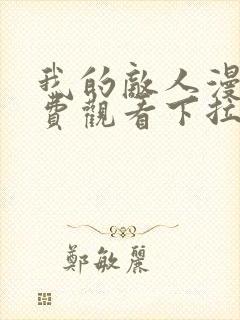 我的敵人漫
費觀看下拉
鄭敏麗